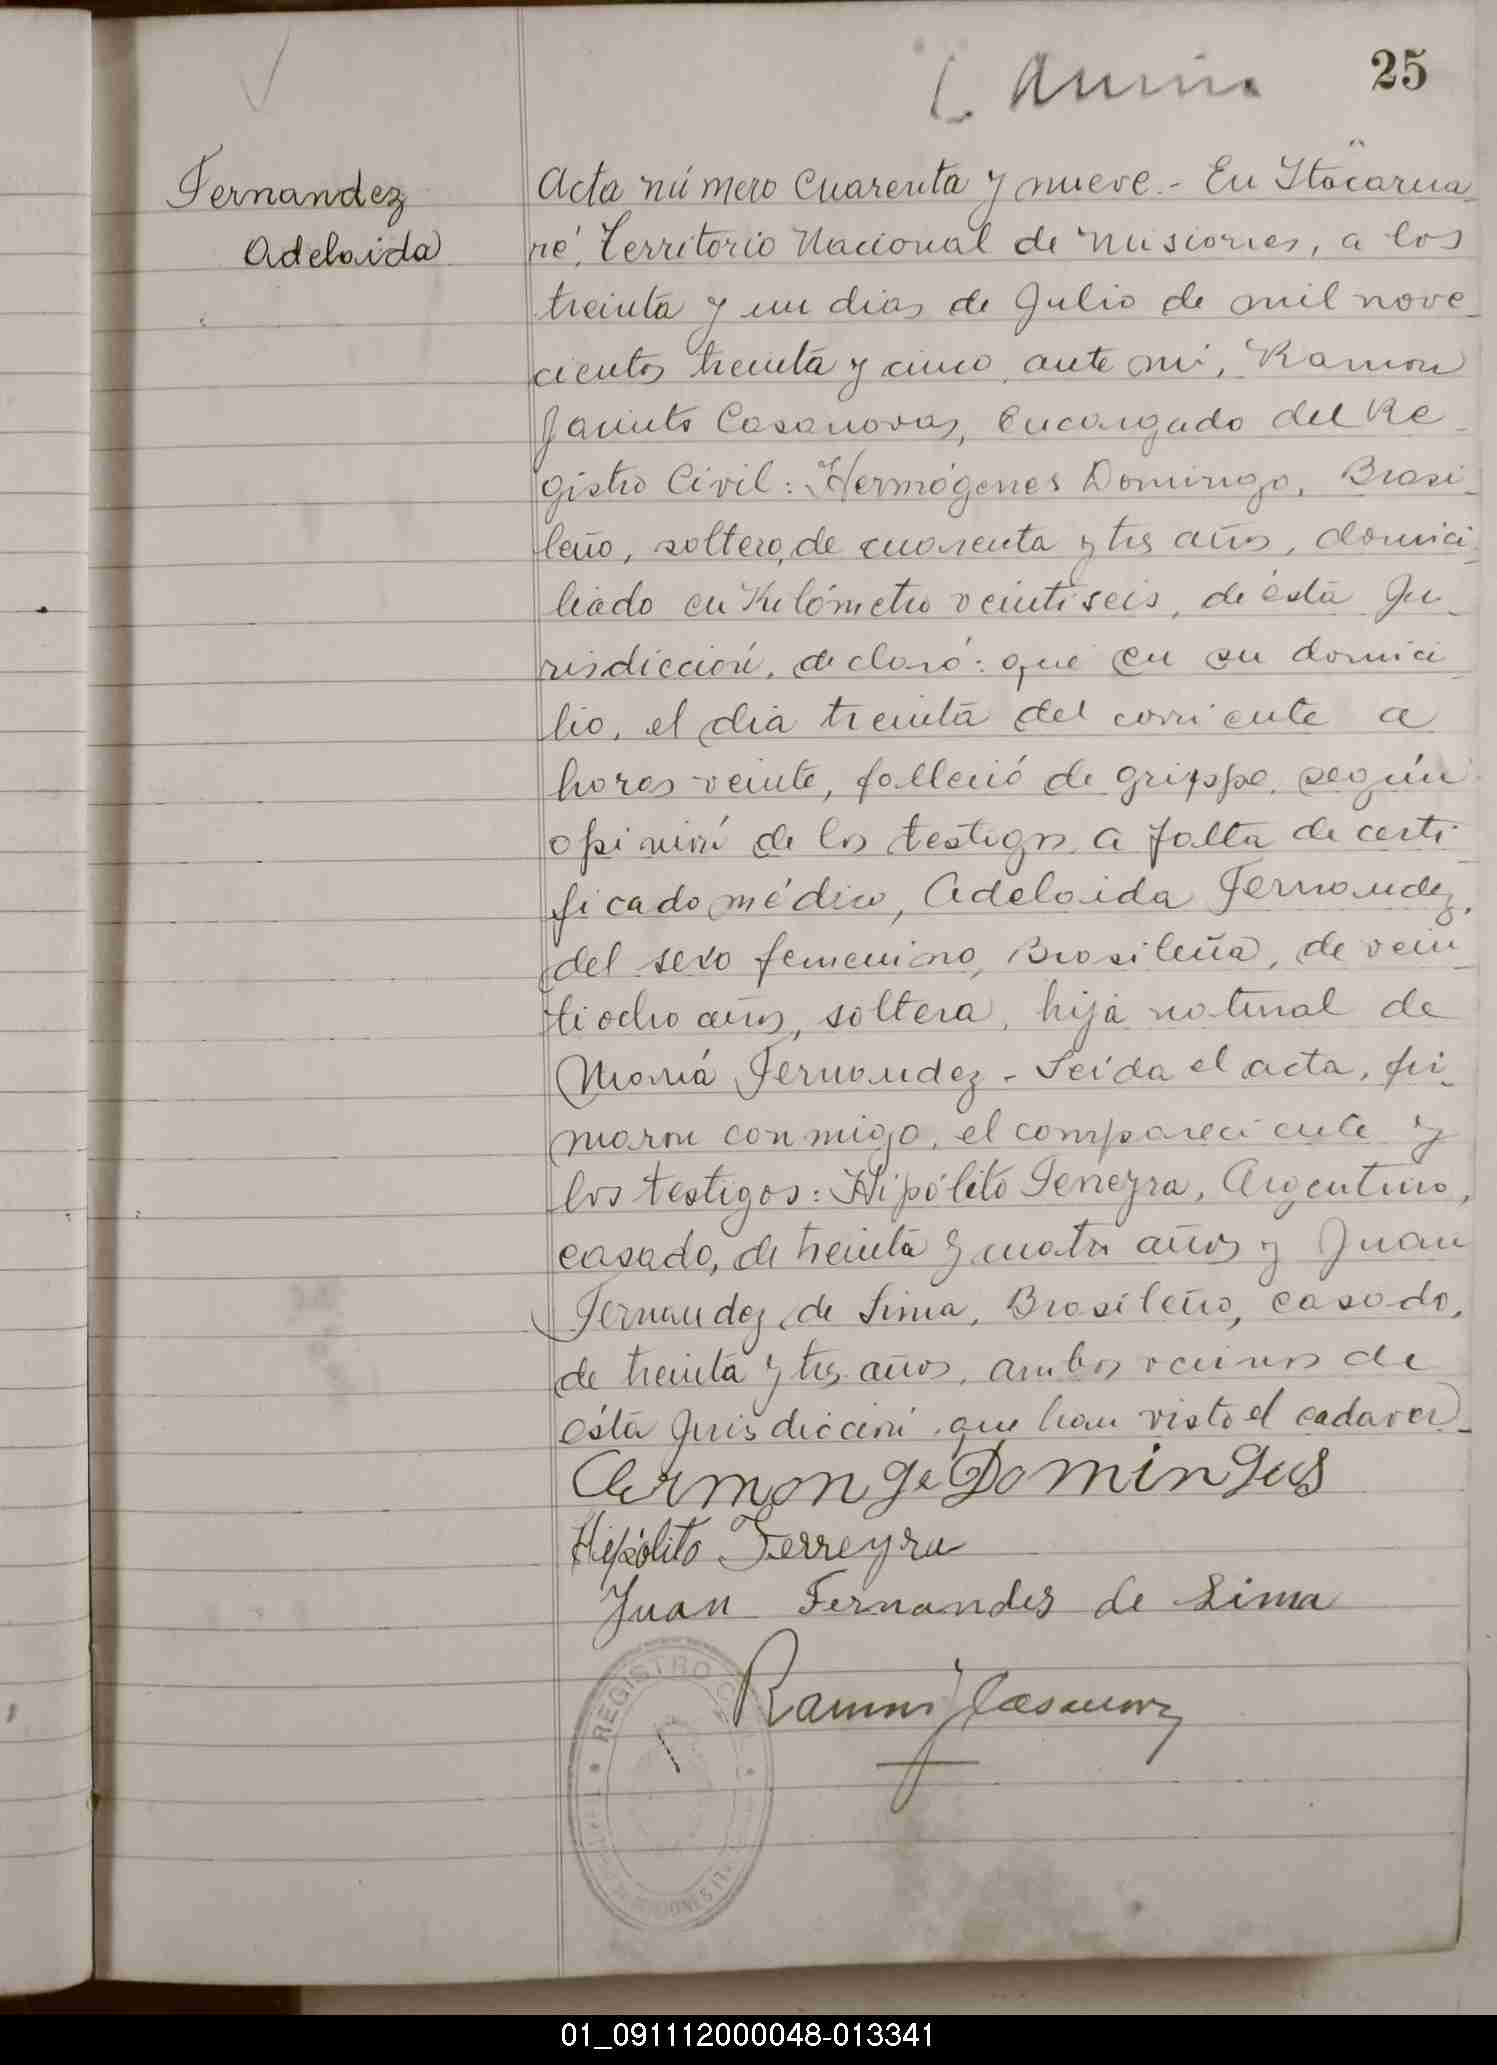 25
Fernandez
Adelaida
Acta número cuarenta y nueve.- En Itacarua-
ré, Territorio Nacional de Misiones, a los
treinta y un dias de Julio de mil nove-
cientos treinta y cinco, ante mi, Ramon
Jacinto Casanovas, Encargado del Re-
gistro Civil: Hermógenes Domingo, Brasi-
leño, soltero, de cuarenta y tres años, domici-
liado en Kilómetro veintiseis, de ésta Ju-
risdicción, declaró: que en su domici-
lio, el dia treinta del corriente a
horas veinte, falleció de grippe, según
opinión de los testigos a falta de certi-
ficado médico, Adelaida Fernandez,
del sexo femenino, Brasileña, de vein-
tiocho años, soltera, hija natural de
María Fernandez - Leida el acta, fir-
maron conmigo, el compareciente y
los testigos: Hipólito Ferreyra, Argentino,
casado, de treinta y cuatro años y Juan
Fernandez de Lima, Brasileño, casado,
de treinta y tres años, ambos vecinos de
ésta Jurisdicción que han visto el cadaver-
Hipólito Ferreyra
Juan Fernandes de Lima
Ramon J Casanovas
REGISTRO
01_091112000048-013341